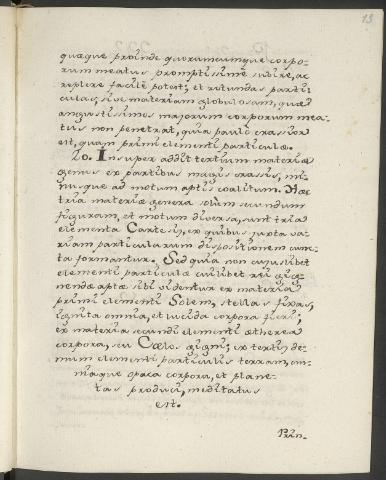 13
quæque proinde quorumcumque corpo-
rum meatus promptissimè subire, ac
replere facilè potest; et rotundas parti-
culas, sive materiam globulosam, quæ
angustissimos majorum corporum mea-
tus non penetrat, quia paulò crassior
est, quam primi elementi particulæ.
20. Insuper addit tertium materiæ
genus ex partibus magis crassis, mi-
nusque ad motum aptis coalitum. Hæc
tria materiæ genera solùm secundum
figuram, et motum diversa, sunt tria
elementa Cartesii, ex quibus juxta va-
riam particularum dispositionem cunc-
ta formantur. Sed quia non cujuslibet
elementi particulæ cuilibet rei gig-
nendæ aptæ sibi videntur ex materia
primi elementi Solem, stellas fixas,
ignita omnia, et lucida corpora fieri;
ex materia secundi elementi ætherea
corpora, seu Cælos gigni; ex tertii de-
mum elementi particulis terram, om-
niaque opaca corpora, et plane-
tas produci, meditatus
est.
Prin-